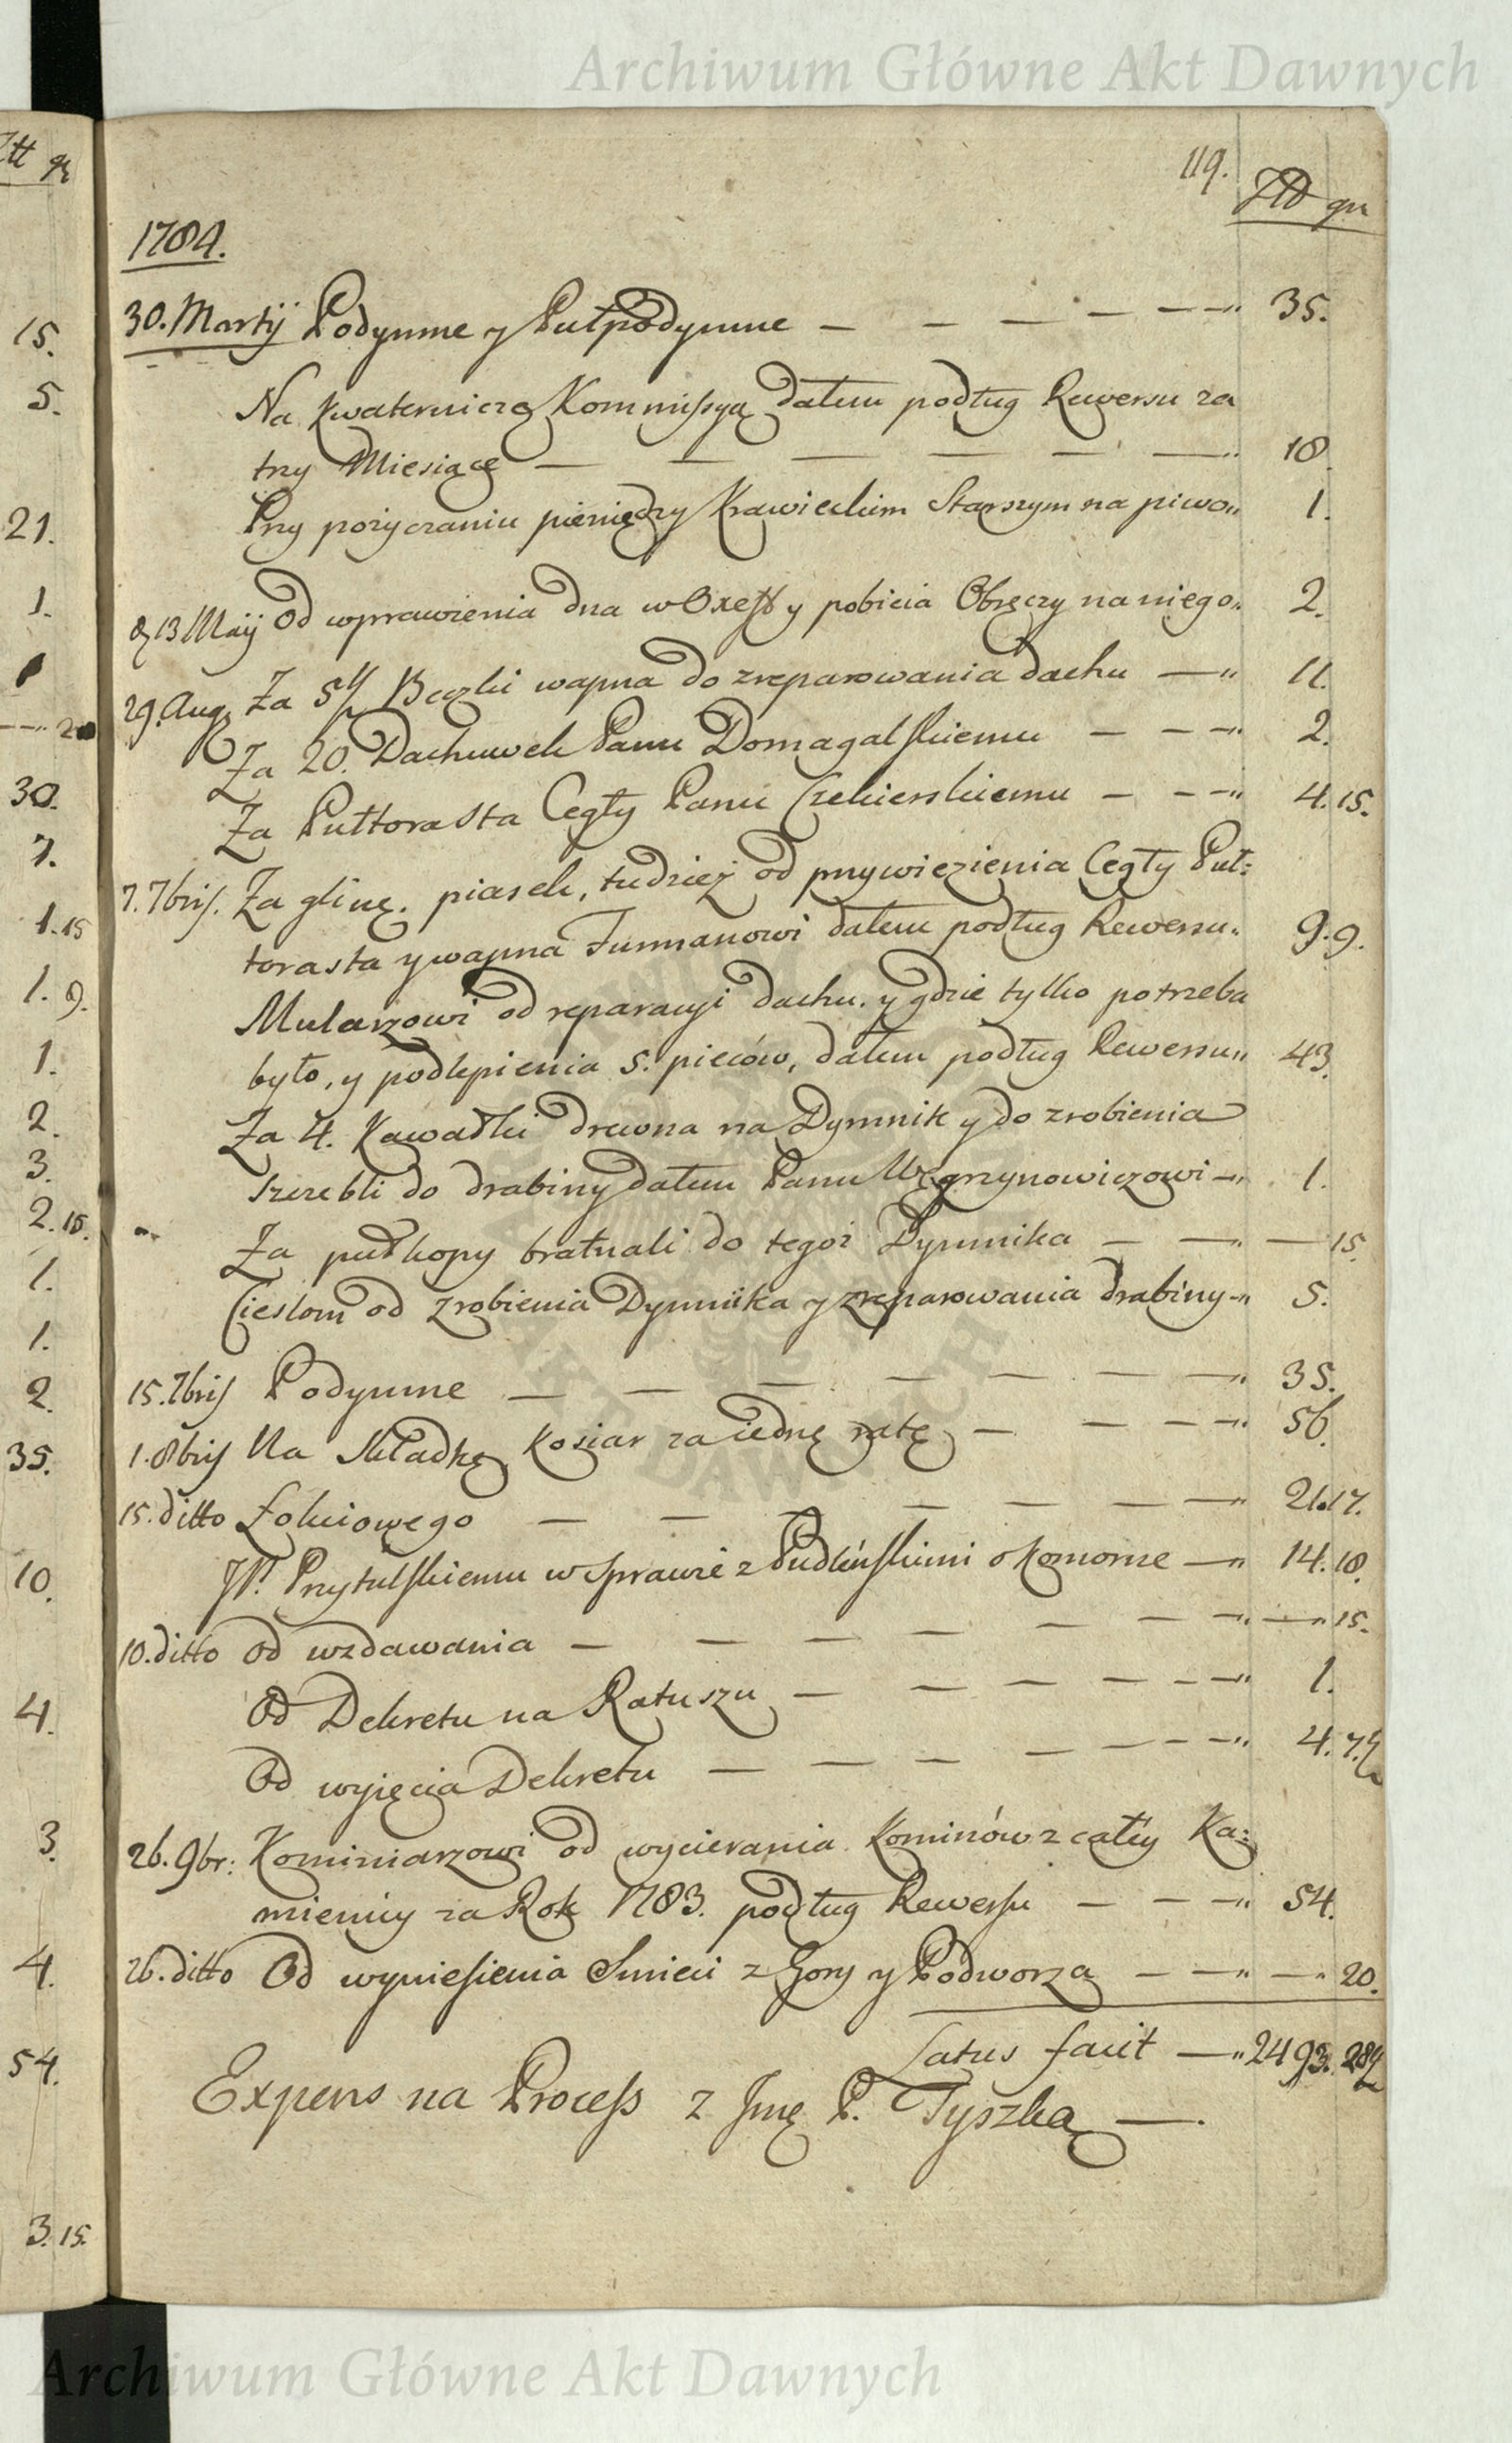 Archiwum Główne Akt Dawnych
119.
Złł gr
Złł gr
1784.
30. Martij Podymne y Pułpodymne — — — — — — 35.
Na Kwaterniczą Kommissyą dałem podług Rewersu za
trzy Miesiące — — — — — — 18.
Przy pożyczaniu pieniędzy Krawieckim Starszym na piwo 1.
d 13 Maij Od wprawienia dna w Oxeft y pobicia Obręczy na niego 2.
29. Aug. Za 5½ Beczki wapna do zreparowania dachu — 11.
Za 20. Dachuwek Panu Domagalskiemu — — — 2.
Za Pułtorasta Cegły Panu Czekierskiemu — — — 4. 15.
7. 7bris. Za glinę, piasek, tudzież od przywiezienia Cegły Puł:
torasta y wapna Furmanowi dałem podług Rewersu 9. 9.
Mularzowi od reparacyi dachu, y gdzie tylko potrzeba
było, y podlepienia 5. pieców, dałem podług Rewersu 43.
Za 4. Kawałki drewna na Dymnik y do zrobienia
szczebli do drabiny dałem Panu Węgrzynowiczowi — 1.
Za pułkopy bratnali do tegoż Dymnika — — — 15.
Cieslom od zrobienia Dymnika y zreparowania drabiny — 5.
15. 7bris Podymne — — — — — — — 35.
1. 8bris Na Składkę Koszar za iednę ratę — — — — 56.
15. ditto Łokciowego — — — — — — — 21. 17.
JP. Przytulskiemu w sprawie z Pudłińskimi o Komorne — 14. 18.
10. ditto Od wzdawania — — — — — — — — 15.
Od Dekretu na Ratuszu — — — — — — 1.
Od wyięcia Dekretu — — — — — — — 4. 7.½
26. 9br: Kominiarzowi od wycierania Kominów z całey Ka:
mienicy za Rok 1783. podług Rewersu — — — 54.
26. ditto Od wyniesienia Smieci z Gory y Podworza — — — 20.
Latus facit — 2493. 28½
Expens na Process z Jmę P. Tyszką —.
15.
5.
21.
1.
30.
7.
1. 15
1. 9.
1.
2.
3.
2. 15.
1.
1.
2.
35.
10.
4.
3.
4.
54.
3. 15.
Archiwum Główne Akt Dawnych